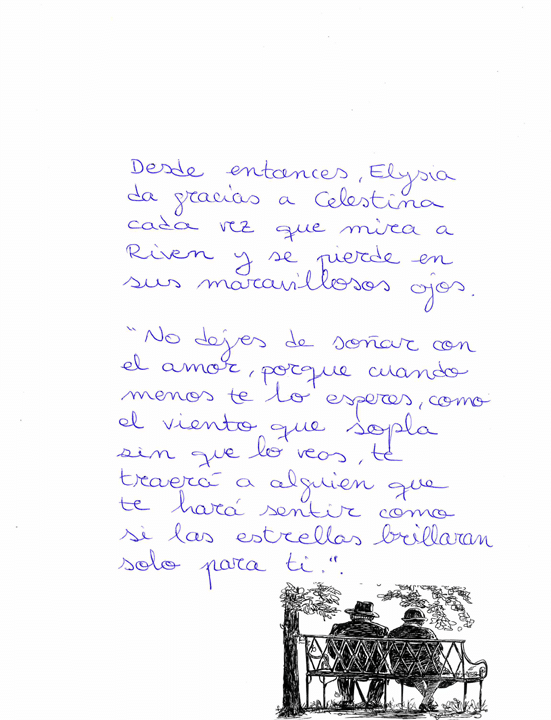 Desde entonces, Elysia
da gracias a Celestina
cada vez que mira a
Riven y se pierde en
sus maravillosos ojos.
"No dejes de soñar con
el amor, porque cuando
menos te lo esperes, como
el viento que sopla
sin que lo veas, te
traerá a alguien que
te hará sentir como
si las estrellas brillaran
solo para ti.".